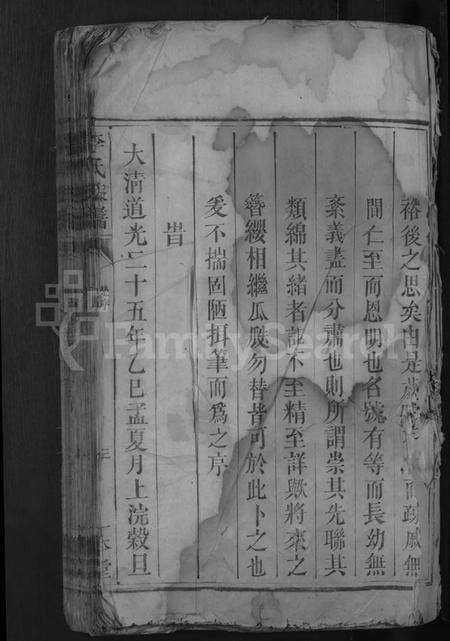 裕後之思矣由是歲
間仁至而恩明也名號有等而長幼無
紊義盡而分肅也則所謂崇其先聯其
類綿其緒者詎不至精至詳歟將來之
簪纓相繼瓜瓞勿替皆可於此卜之也
爰不揣固陋拜筆而為之序
旹
大清道光二十五年乙巳孟夏月上浣穀旦
氏族譜
FamilySearch